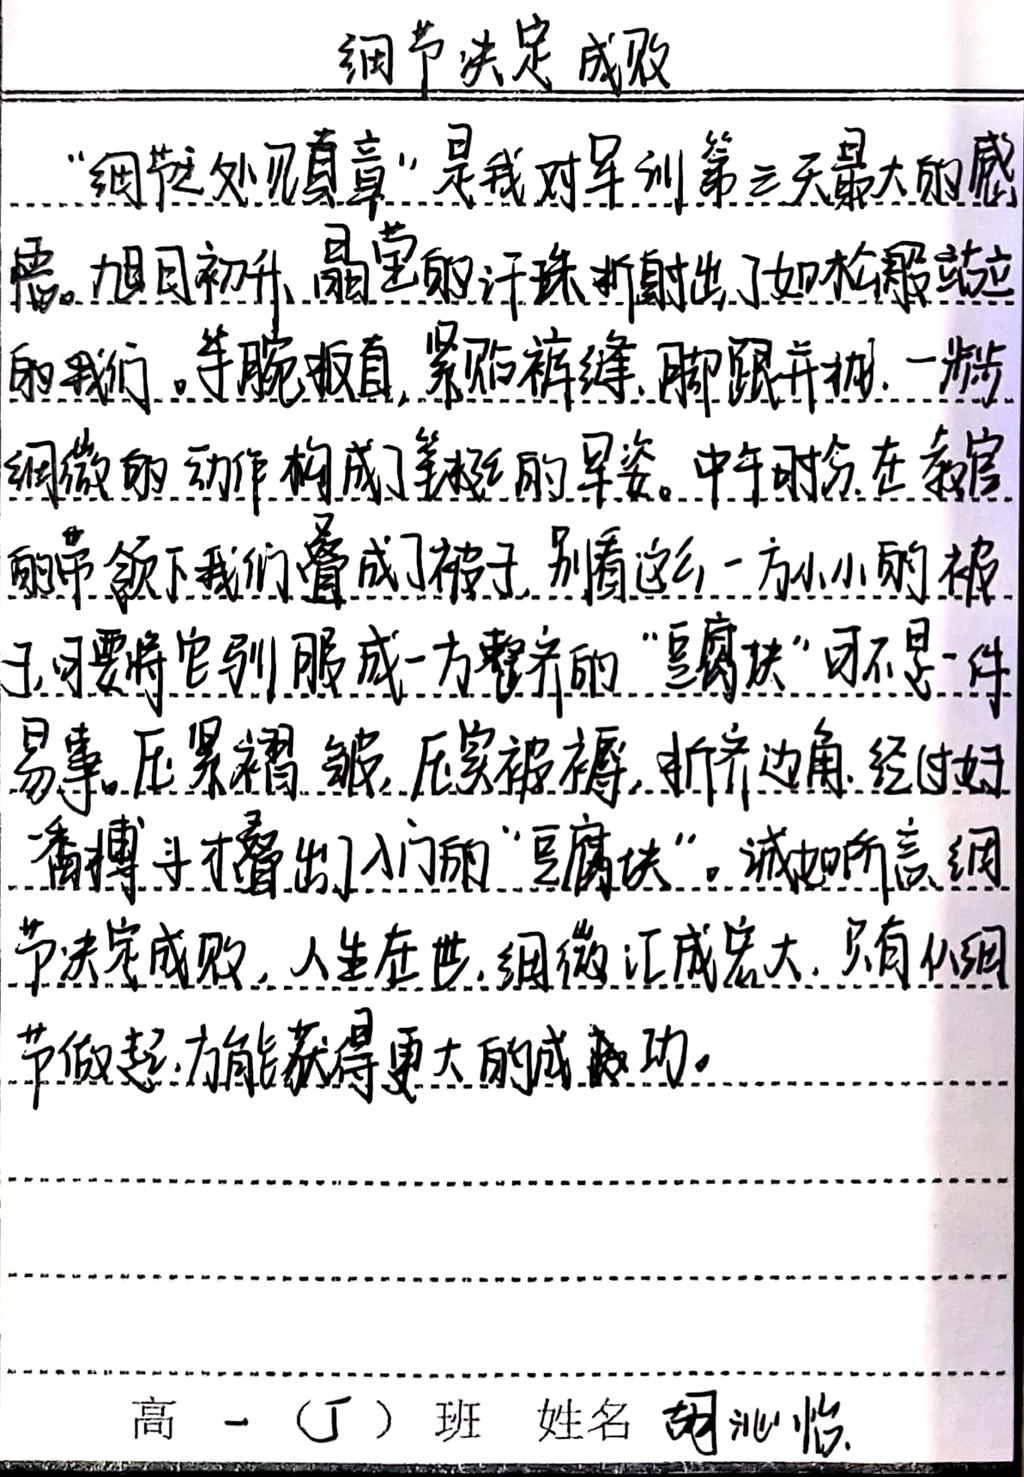 细节决定成败
"细节之处见真章"是我对军训第三天最大的感
悟。旭日初升、晶莹的汗珠折射出了如松般站立
的我们。手腕扳直,紧贴裤缝、脚跟并拢、一步步
细微的动作构成了笔挺的军姿。中午时分在教官
的带领下我们叠成了被子,别看这么一方小小的被
子,可要将它驯服成一方整齐的"豆腐块"可不是一件
易事。压紧褶皱,压实被褥,折齐边角、经过好
一番搏斗才叠出了入门的"豆腐块"。诚如所言,细
节决定成败,人生在世,细微汇成宏大,只有从细
节做起,方能获得更大的成功。
高一(丁)班 姓名 胡沁怡